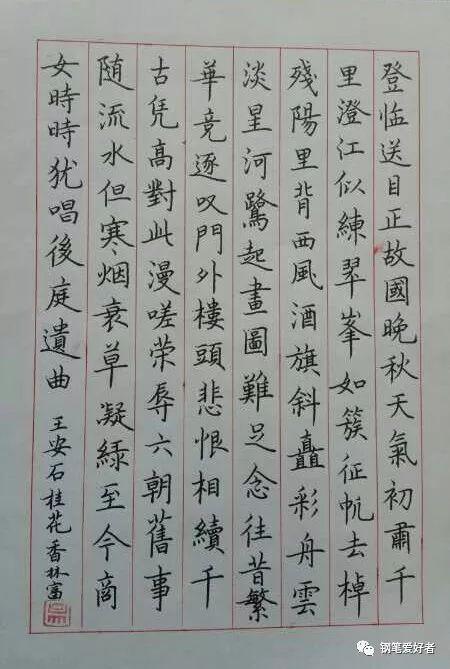 登临送目正故國晚秋天氣初肅千
里澄江似練翠峯如簇征帆去棹
殘陽里背西風酒旗斜矗彩舟雲
淡星河鷺起畫圖難足念往昔繁
華竞逐叹門外樓頭悲恨相續千
古凭高對此漫嗟荣辱六朝舊事
随流水但寒烟衰草凝緑至今商
女時時犹唱後庭遺曲 王安石桂花香林富
钢笔爱好者